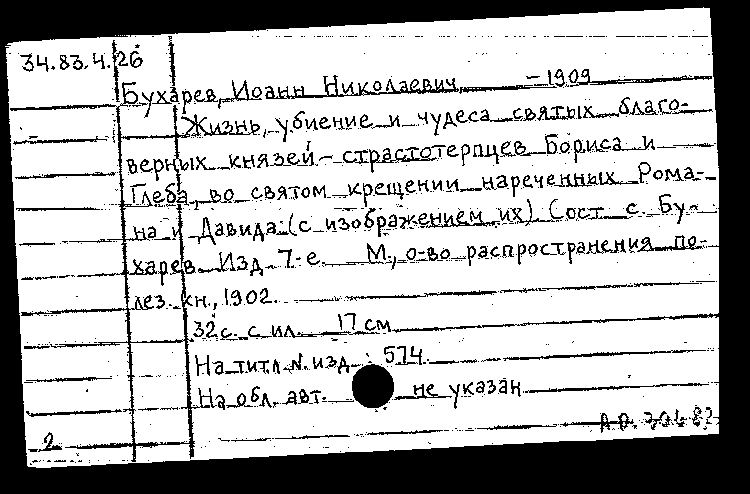 34.83.4.26
Бухарев, Иоанн Николаевич, -1909
Жизнь, убиение и чудеса святых благо-
верных князей-страстотерпцев Бориса и
Глеба, во святом крещении нареченных Рома-
на и Давида: (с изображением их) Сост. с. Бу-
харев. Изд. 7-е. М., о-во распространения по-
лез. кн., 1902.
32с. с ил. 17 см
На титл. N. изд.: 574.
На обл. авт. не указан
2